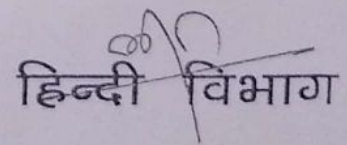 हिन्दी विभाग